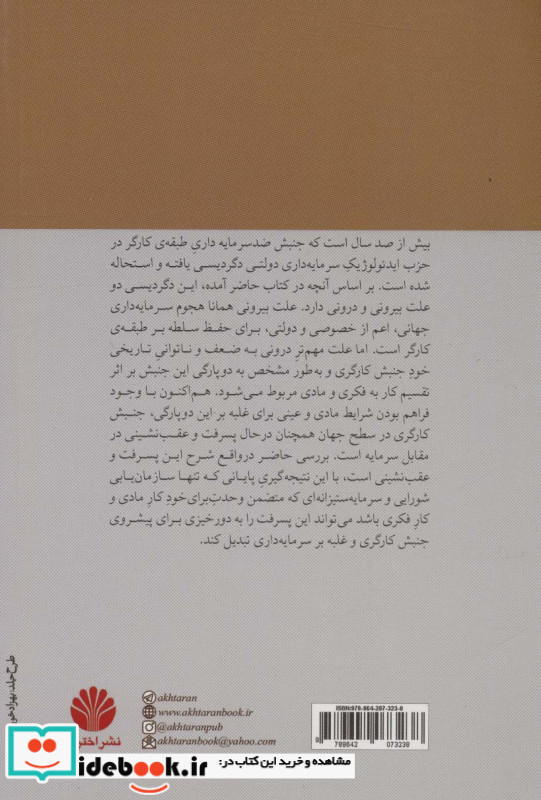 بیش از صد سال است که جنبش ضدسرمایه داریِ طبقه‌ی کارگر در
حزب ایدئولوژیکِ سرمایه‌داری دولتی دگردیسی یافته و استحاله
شده است. بر اساس آنچه در کتاب حاضر آمده، این دگردیسی دو
علت بیرونی و درونی دارد. علت بیرونی همانا هجوم سرمایه‌داری
جهانی، اعم از خصوصی و دولتی، برای حفظ سلطه بر طبقه‌ی
کارگر است. اما علت مهم‌ترِ درونی به ضعف و ناتوانیِ تاریخی
خودِ جنبش کارگری و به‌طور مشخص به دوپارگی این جنبش بر اثر
تقسیم کار به فکری و مادی مربوط می‌شود. هم‌اکنون با وجود
فراهم بودن شرایط مادی و عینی برای غلبه بر این دوپارگی، جنبش
کارگری در سطح جهان همچنان درحال پسرفت و عقب‌نشینی در
مقابل سرمایه است. بررسی حاضر درواقع شرح این پسرفت و
عقب‌نشینی است، با این نتیجه‌گیریِ پایانی که تنها سازمان‌یابی
شورایی و سرمایه‌ستیزانه‌ای که متضمن وحدتِ‌برای‌خودِ کارِ مادی و
کارِ فکری باشد می‌تواند این پسرفت را به دورخیزی برای پیشروی
جنبش کارگری و غلبه بر سرمایه‌داری تبدیل کند.
طرح جلد: بهزاد
akhtaran
www.akhtaranbook.ir
@akhtaranpub
akhtaranbook@yahoo.com
نشر اختر
ISBN:978-964-207-323-8
9 789642 073238
مشاهده و خرید این کتاب در:
idebook.ir